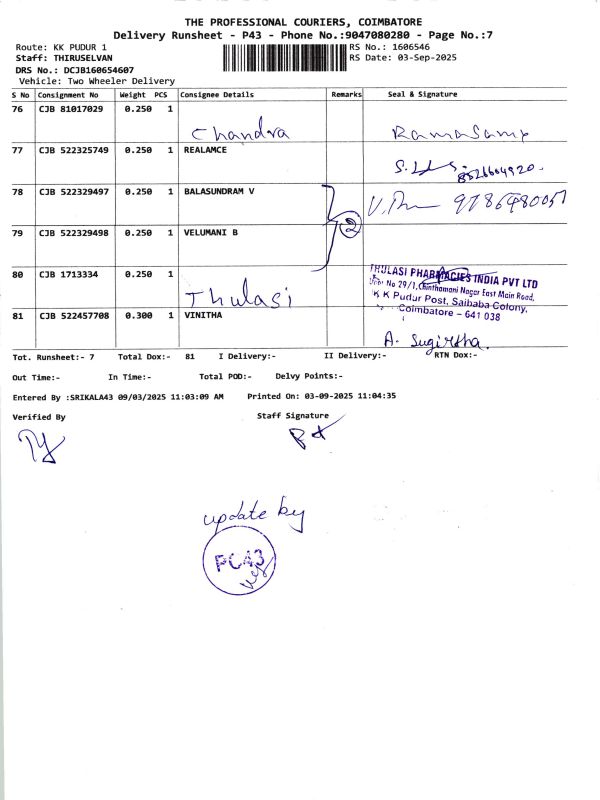 THE PROFESSIONAL COURIERS, COIMBATORE
Delivery Runsheet - P43 - Phone No.:9047080280 - Page No.:7
Route: KK PUDUR 1 RS No.: 1606546
Staff: THIRUSELVAN RS Date: 03-Sep-2025
DRS No.: DCJB160654607
Vehicle: Two Wheeler Delivery
S No Consignment No Weight PCS Consignee Details Remarks Seal & Signature
76 CJB 81017029 0.250 1
Chandra Ramasamy
77 CJB 522325749 0.250 1 REALAMCE
8526604920.
78 CJB 522329497 0.250 1 BALASUNDRAM V
79 CJB 522329498 0.250 1 VELUMANI B
2
80 CJB 1713334 0.250 1
Thulasi
THULASI PHARMACIES INDIA PVT LTD
No 29/1, Chinthamani Nagar East Main Road,
K K Pudur Post, Saibaba Colony,
Coimbatore - 641 038
81 CJB 522457708 0.300 1 VINITHA
A. Sugirtha.
Tot. Runsheet:- 7 Total Dox:- 81 I Delivery:- II Delivery:- RTN Dox:-
Out Time:- In Time:- Total POD:- Delvy Points:-
Entered By :SRIKALA43 09/03/2025 11:03:09 AM Printed On: 03-09-2025 11:04:35
Verified By Staff Signature
update by
PC43